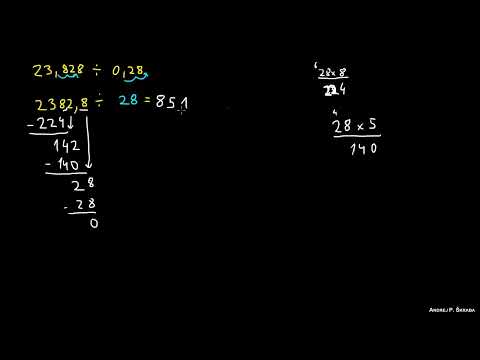 23,828 ÷ 0,28
2382,8 ÷ 28 = 851
- 224
142
- 140
28
- 28
0
6
28 × 8
224
4
28 × 5
140
ANDREJ P. ŠKRABA